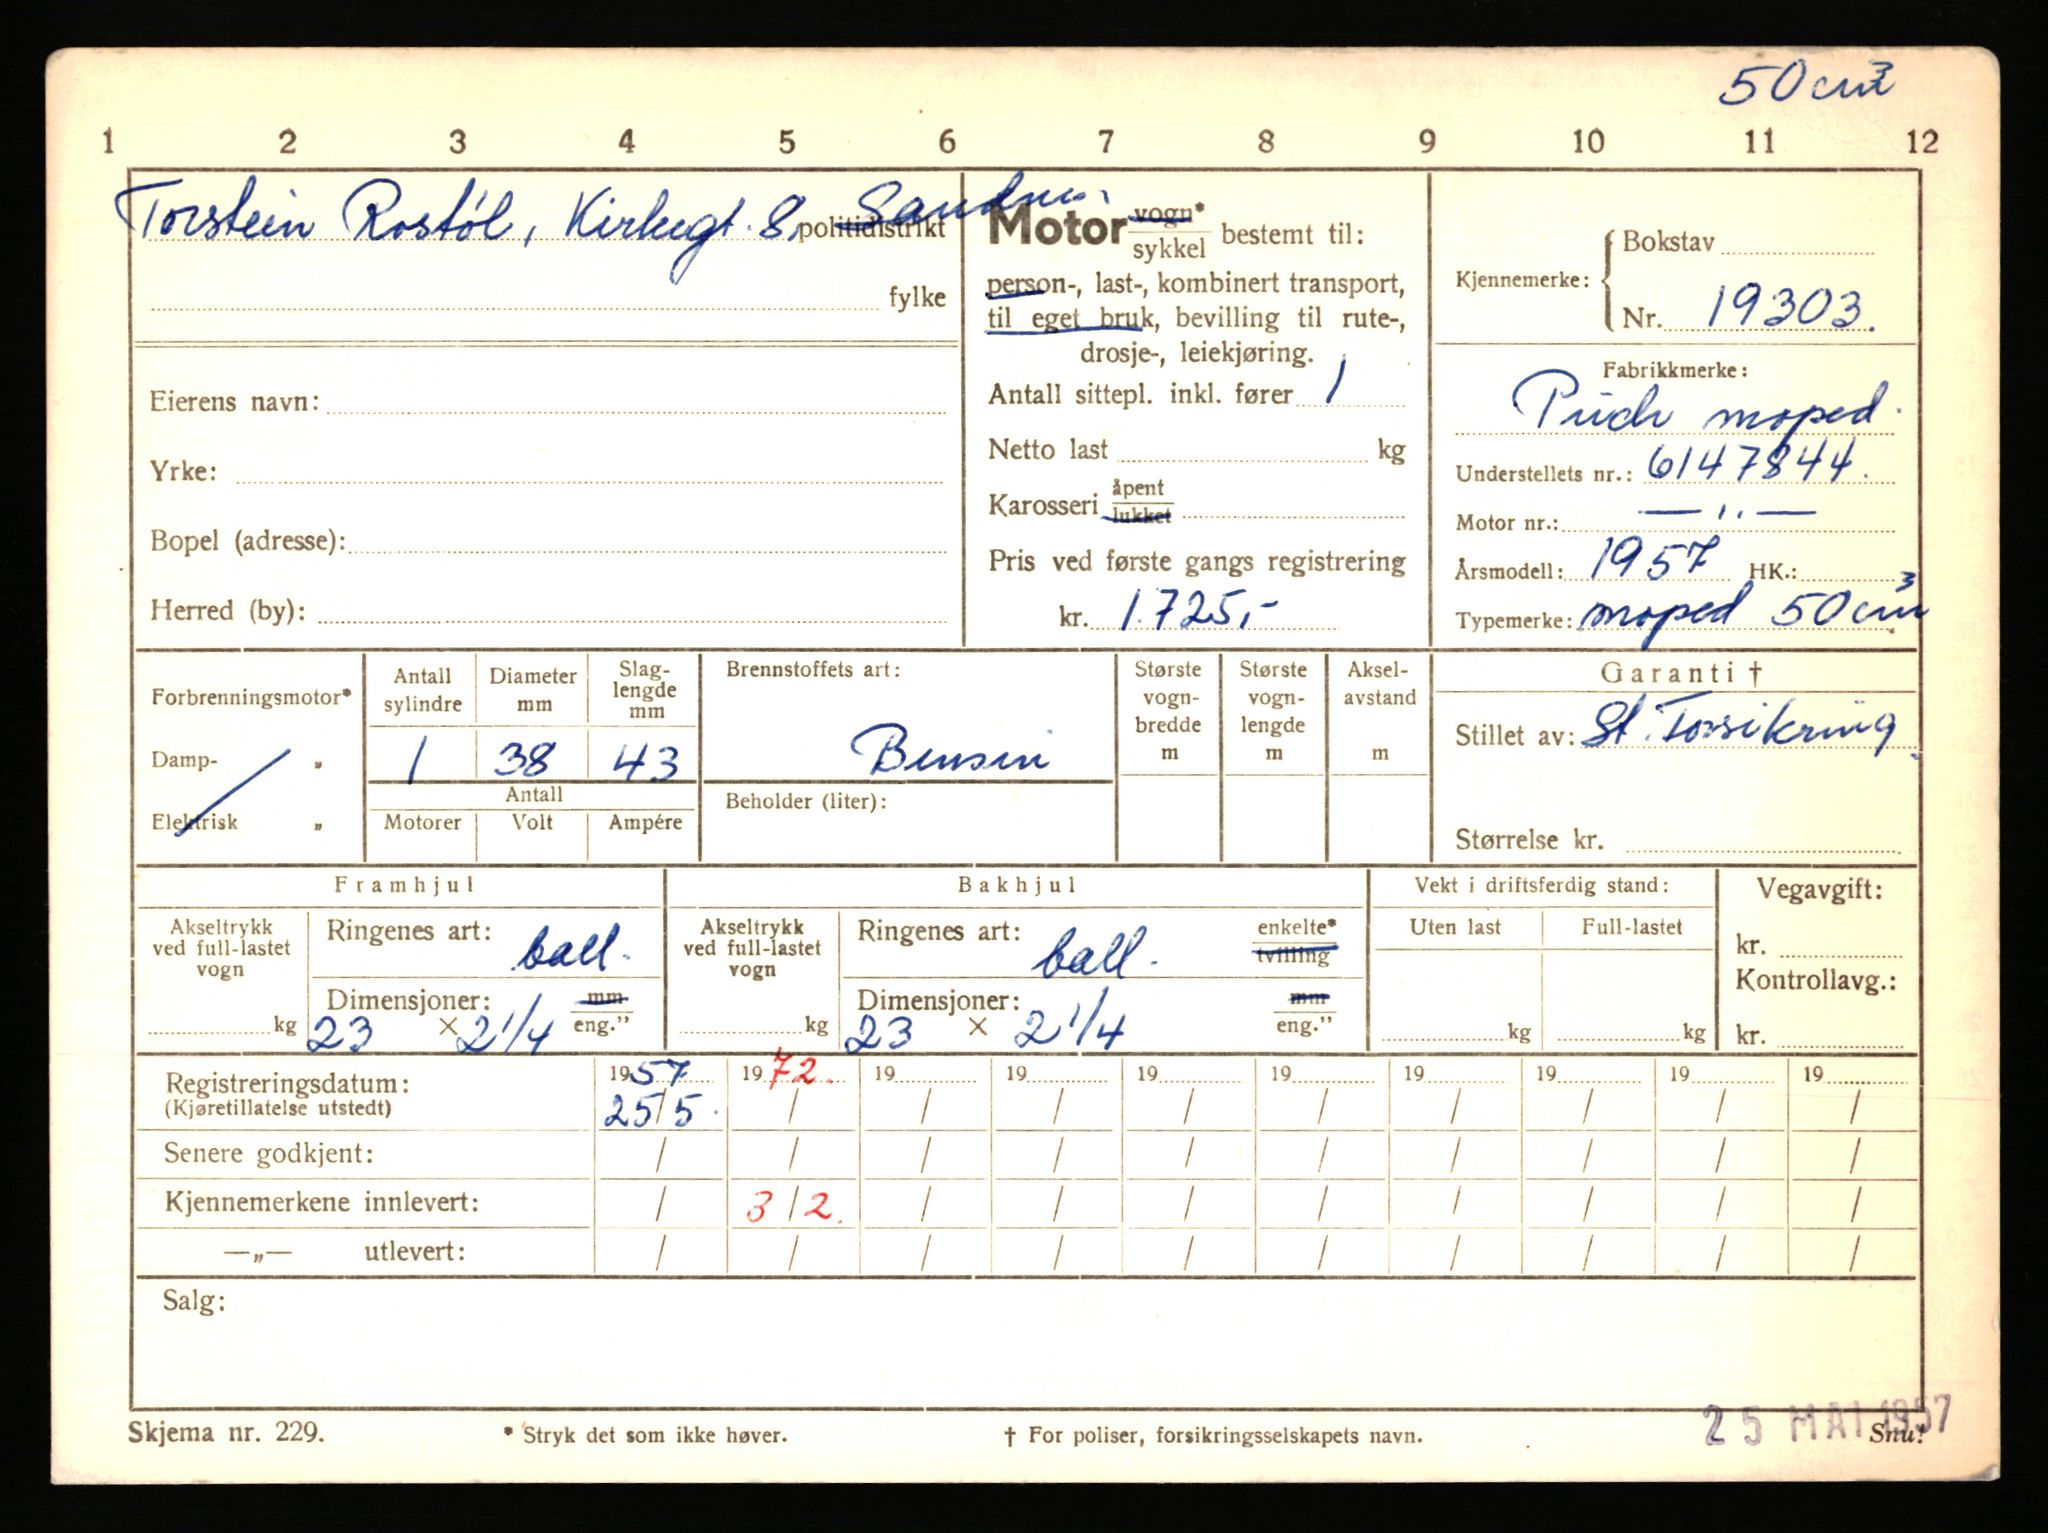 50 cm³
1 2 3 4 5 6 7 8 9 10 11 12
Torstein Rostøl, Kirkegt. 8, politidistrikt
fylke
Eierens navn:
Yrke:
Bopel (adresse):
Herred (by):
Motor vogn* sykkel bestemt til:
person-, last-, kombinert transport,
til eget bruk, bevilling til rute-,
drosje-, leiekjøring.
Antall sittepl. inkl. fører 1
Netto last kg
Karosseri åpent lukket
Pris ved første gangs registrering
kr. 1.725,-
Kjennemerke: Bokstav
Nr. 19303.
Fabrikkmerke:
Puch moped.
Understellets nr.: 6147844.
Motor nr.: — " —
Årsmodell: 1957 HK.:
Typemerke: moped 50 cm³
Forbrenningsmotor*
Damp- „
Elektrisk „
Antall sylindre
1
Diameter mm
38
Slag-lengde mm
43
Antall
Motorer Volt Ampére
Brennstoffets art:
Bensin
Beholder (liter):
Største vogn-bredde m
Største vogn-lengde m
Aksel-avstand m
Garanti †
Stillet av: St. Forsikring
Størrelse kr.
Framhjul
Akseltrykk ved full-lastet vogn
kg
Ringenes art: ball.
Dimensjoner: mm
23 × 2 1/4 eng."
Bakhjul
Akseltrykk ved full-lastet vogn
kg
Ringenes art: ball. enkelte* tvilling
Dimensjoner: mm
23 × 2 1/4 eng."
Vekt i driftsferdig stand:
Uten last Full-lastet
kg kg
Vegavgift:
kr.
Kontrollavg.:
kr.
Registreringsdatum: 1957 1972. 19 19 19 19 19 19 19 19
(Kjøretillatelse utstedt) 25/5. / / / / / / / / /
Senere godkjent: / / / / / / / / / /
Kjennemerkene innlevert: / 3/2. / / / / / / / /
—„— utlevert: / / / / / / / / / /
Salg:
25 MAI 1957
Skjema nr. 229. * Stryk det som ikke høver. † For poliser, forsikringsselskapets navn. Snu!